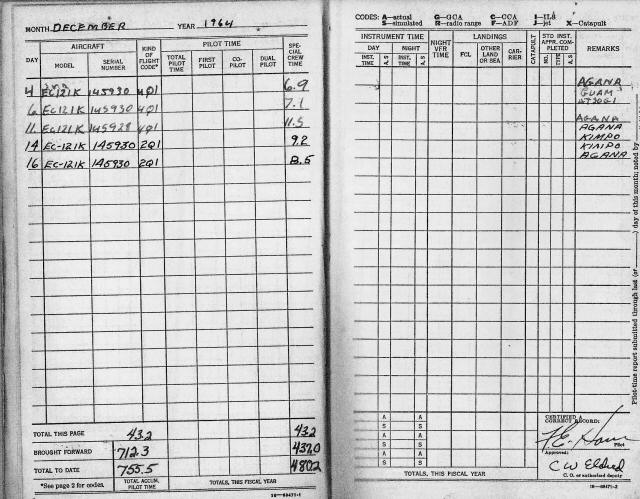 MONTH DECEMBER YEAR 1964
AIRCRAFT
PILOT TIME
DAY
MODEL
SERIAL NUMBER
KIND OF FLIGHT CODE*
TOTAL PILOT TIME
FIRST PILOT
CO-PILOT
DUAL PILOT
SPECIAL CREW TIME
4 EC121K 145930 4Q1 6.9
6 EC121K 145930 4Q1 7.1
11 EC121K 145928 4Q1 11.5
14 EC-121K 145930 2Q1 9.2
16 EC-121K 145930 2Q1 8.5
TOTAL THIS PAGE 43.2 43.2
BROUGHT FORWARD 712.3 437.0
TOTAL TO DATE 755.5 480.2
*See page 2 for codes.
TOTAL ACCUM. PILOT TIME
TOTALS, THIS FISCAL YEAR
16—68471-1
CODES: A—actual G—GCA C—CCA J—ILS
S—simulated R—radio range F—ADF J—jet X—Catapult
INSTRUMENT TIME
LANDINGS
STD INST APPR. COMPLETED
REMARKS
DAY
NIGHT
INST. TIME
A, S
INST. TIME
A, S
NIGHT VFR TIME
FCL
OTHER LAND OR SEA
CARRIER
CATAPULT
NO.
TYPE
A, S
AGANA
GUAM
ATSUGI
AGANA
AGANA
KIMPO
KIMPO
AGANA
Pilot-time report submitted through last (or
) day of this month; noted by
A A
S S
A A
S S
A A
S S
CERTIFIED A CORRECT RECORD:
Pilot
Approved:
C W Eldred
C. O. or authorized deputy
TOTALS, THIS FISCAL YEAR
16—68471-2